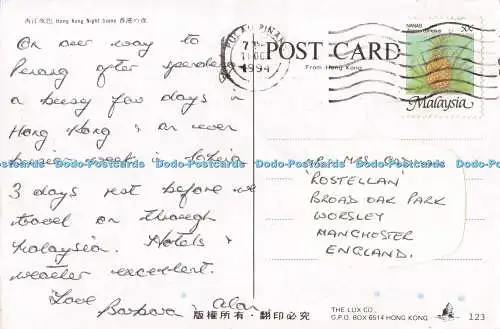 香港の夜 Hong Kong Night Scene 香港之夜
On our way to
Penang after spending
a busy few days in
Hong Kong & an even
busier week in
3 days rest before we
travel on through
Malaysia. Hotels &
weather excellent.
Love
Barbara & Alan
POST CARD
From Hong Kong
PULAU PINANG
1994
NANAS
30c
Malaysia
MR. MRS
'ROSTELLAN'
BROAD OAK PARK
WORSLEY
MANCHESTER
ENGLAND.
版權所有・翻印必究
THE LUX CO.
G.P.O. BOX 6514 HONG KONG
123
Dodo-Postcards Dodo-Postcards Dodo-Postcards Dodo-Postcards Dodo-Postcards